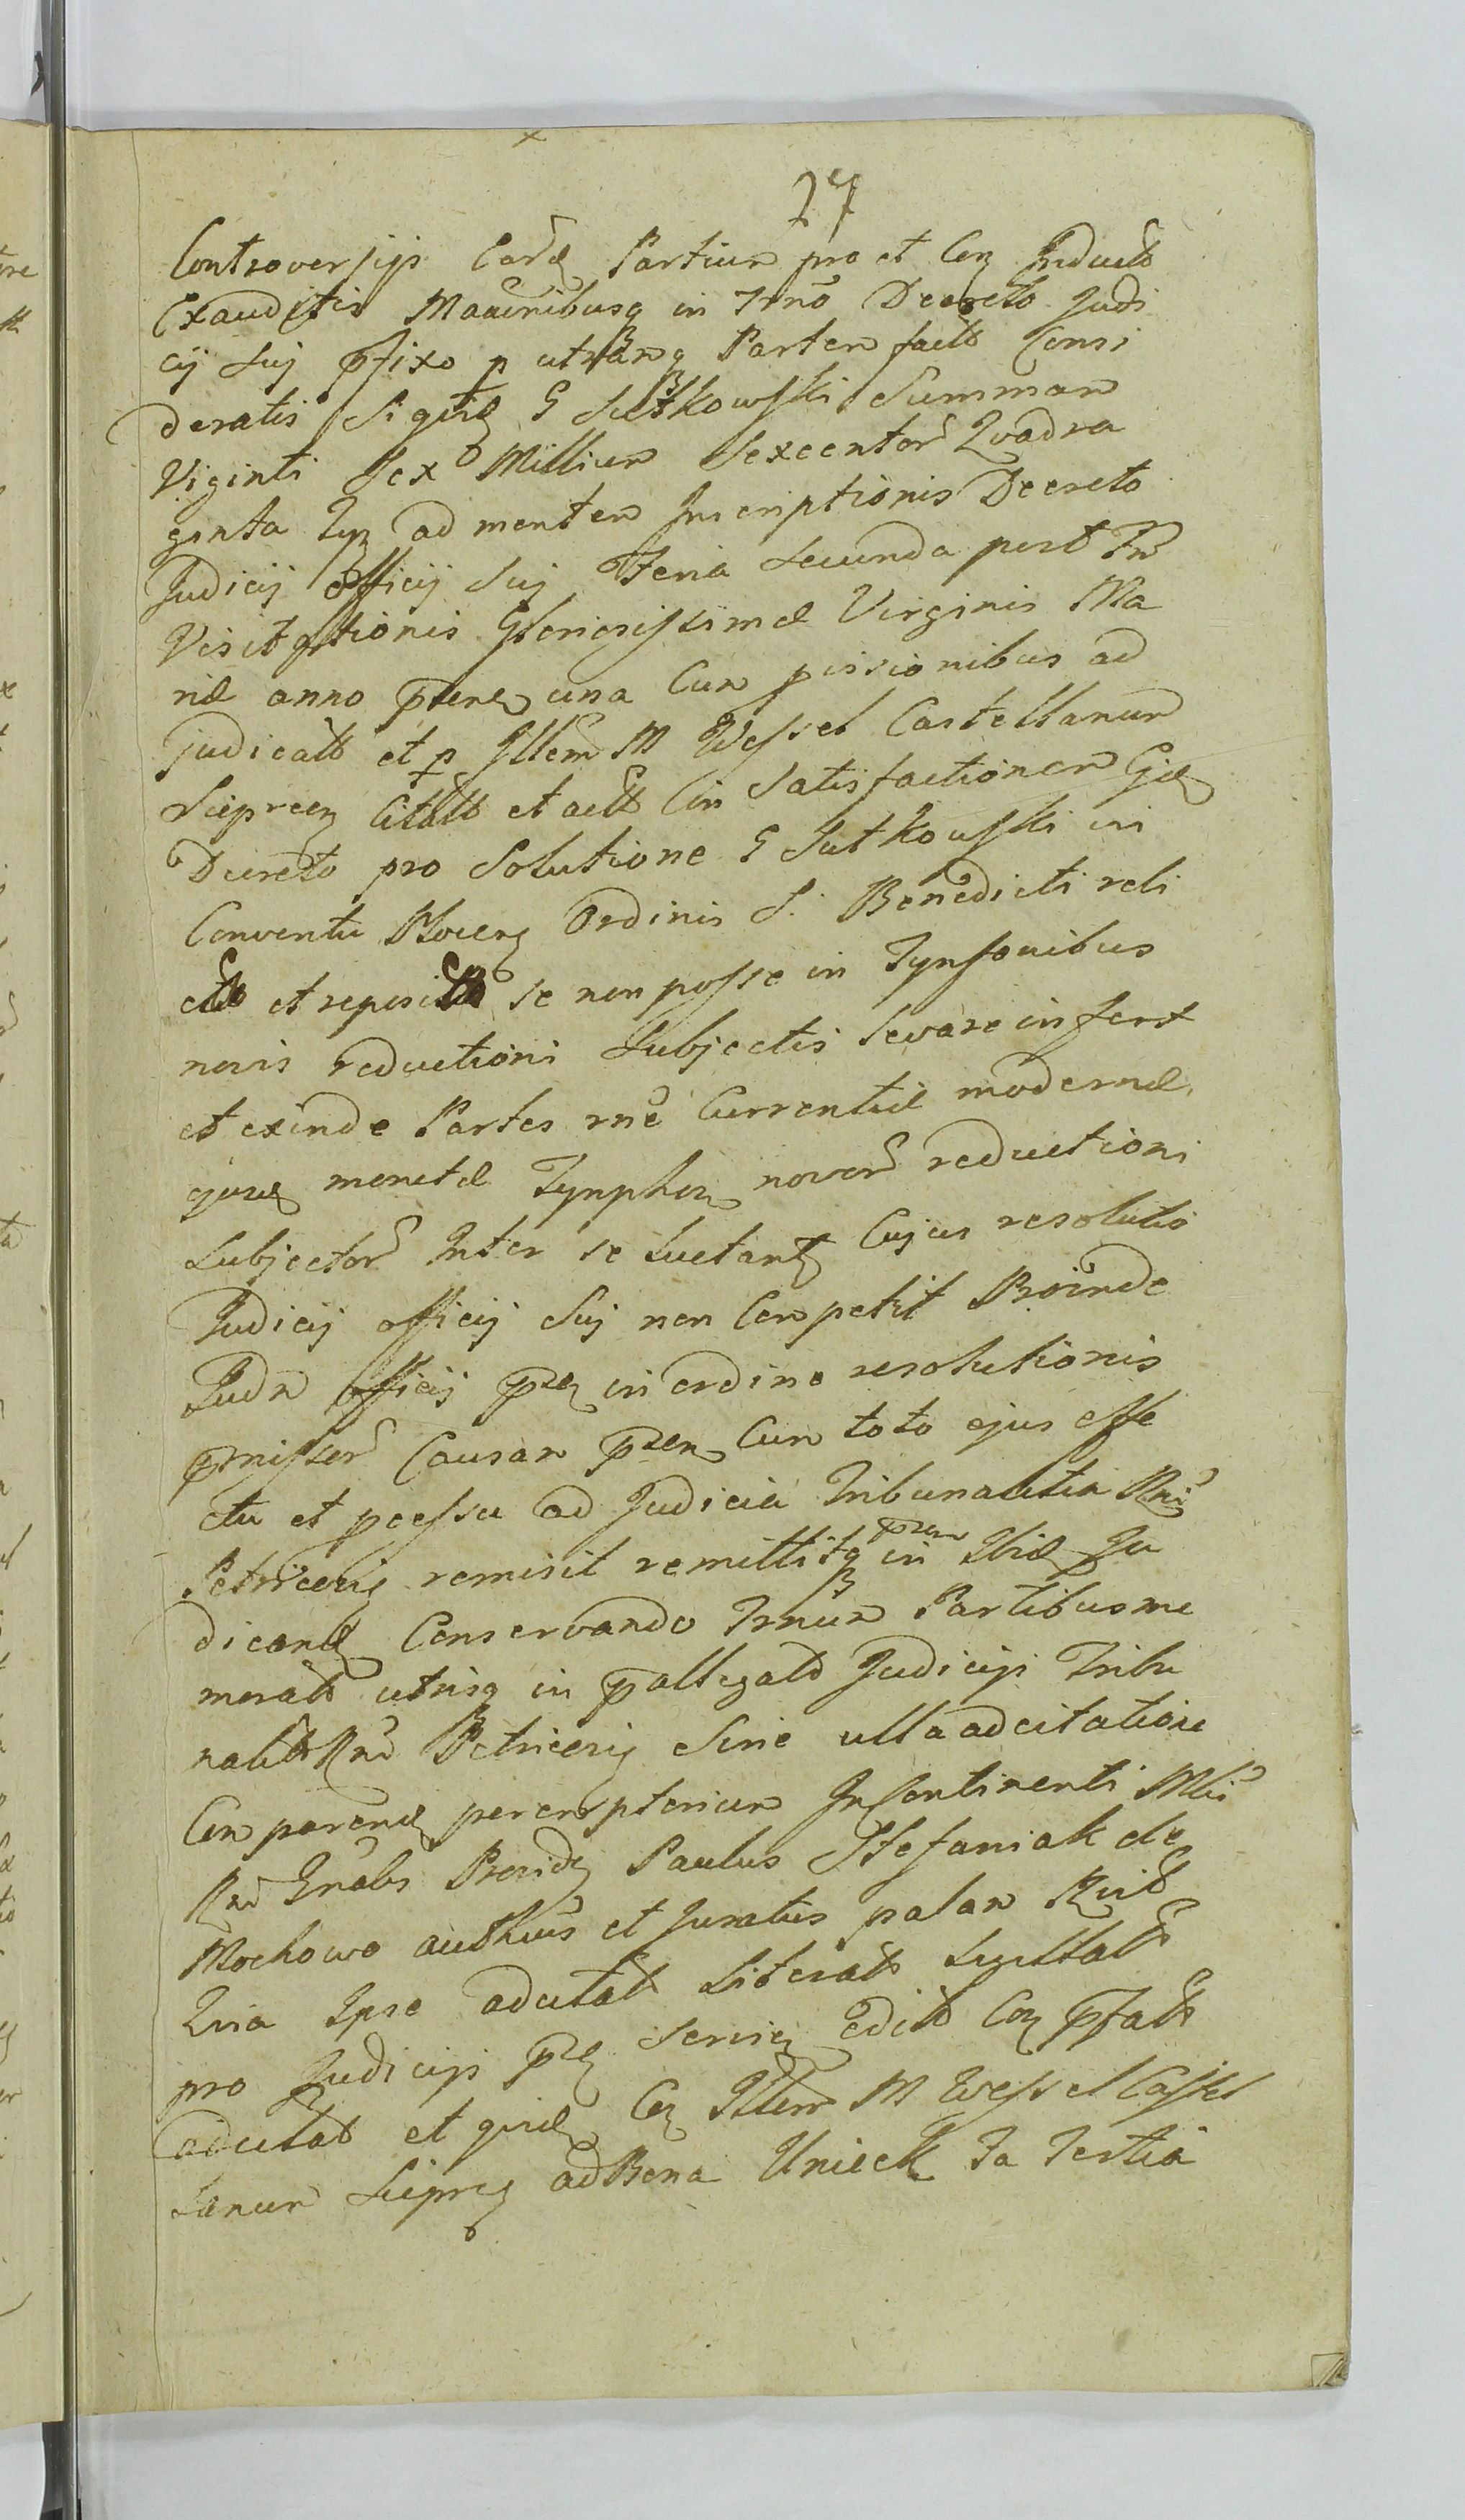 27
Controversijs Eard Partium pro et Con Induct
Exauditis Maainibusq in Trno Decreto Judi
cij Suj pfixo p utramq Partem fact Consi
deratis Siquid G Sutkowski Summam
Viginti Sex Millium Sexcentor Quadra
ginta ad mentem Inscriptionis Decreto
Judicij officij Suj Feria Secunda post
Visitationis Gloriosissimæ Virginis Ma
riæ anno pten una Cum pissionibus ad
judicatt et p Illem M Wessel Castellanum
Sieprcen Citatt et actt in Satisfactionem
Decreto pro Solutione G Sutkowski in
Conventu Plocen Ordinis S. Benedicti reli
ctt et reposit se non posse in Tynfonibus
novis reductioni Subjectis levare infert
et exinde Partes rne Currentiæ modernæ
monetæ Tynphon novor reductioni
Subjector Inter se luctant Cujus resolutio
Judicij officij Suj non Competit Proinde
Judm officij pns in ordine resolutionis
pmissor Causam pten Cum toto ejus effe
ctu et pcessu ad Judicia Tribunalitia Rni
Petricen remisit remittitq pten in Ibid Ju
dicand Conservando Trnum Partibus me
moratt utrisq in pallegatt Judicijs Tribu
nalitt Rni Petricen Sine ulla adcitatione
Comparend peremptorium Incontinenti Mtis
Rni Gnalis Provid Paulus Stefaniak de
Mochowo authus et Juratus palam
Quia Ipse adcitatt Literatt
pro Judicijs Edit Con pfatt
adcitatt et quid Con Illem M Wessel Castel
lanum Sieprcen ad Bona Unieck Fa Tertia